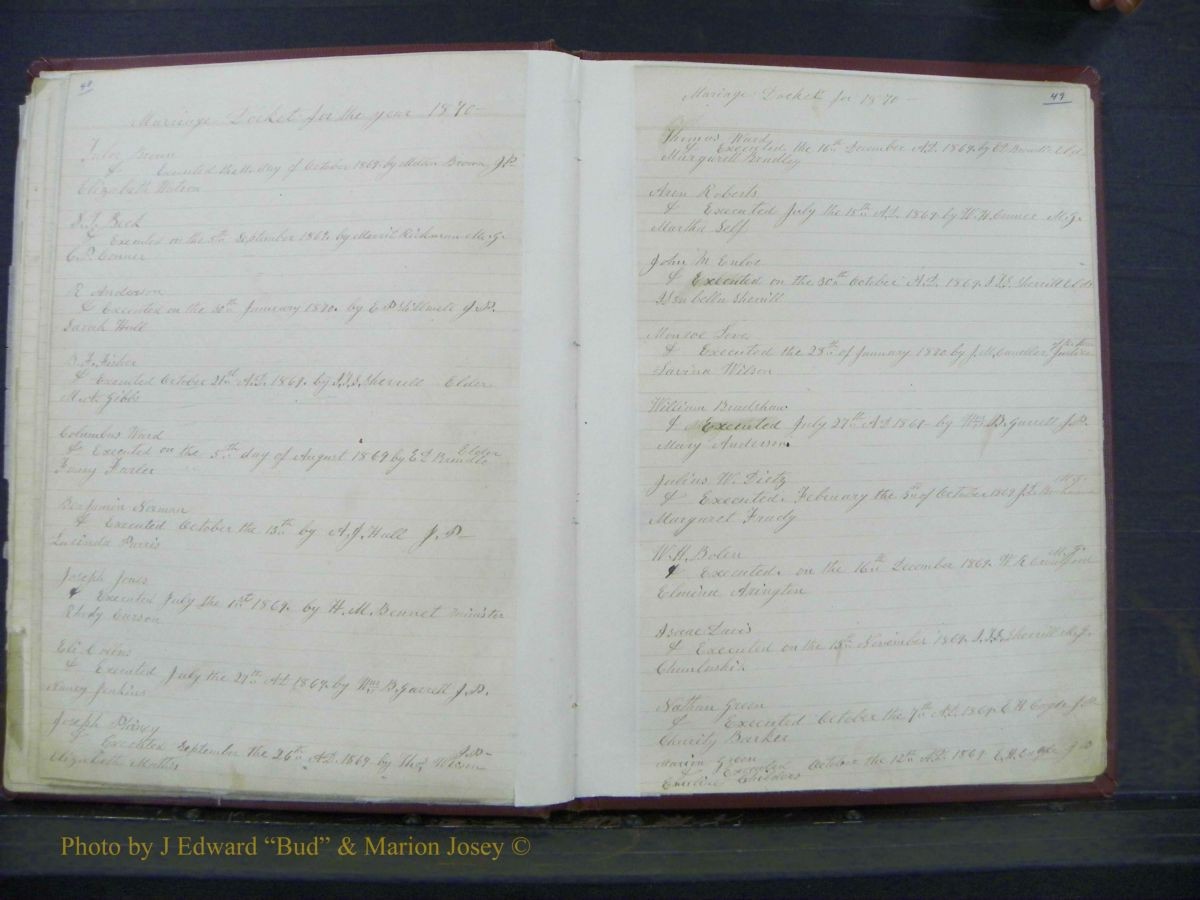 48
Marriage Docket for the year 1870
Brown
& Executed the day of October 1869. by Brown J.P.
Elizabeth Watson
Beck
& Executed on the 5th September 1869. by Merril Richman M.G.
C.P. Conner
E Anderson
& Executed on the 30th January 1870. by E P Stillwell J.P.
Sarah Hall
Fisher
& Executed October 31st A.D. 1869. by J.J.S. Sherrill Elder
M.A. Gibbs
Columbus Ward
& Executed on the 5th day of August 1869 by E D Brendle Elder
Fanny Farler
Benjamin Norman
& Executed October the 13th by A.J. Hall J.P.
Lucinda Parris
Joseph Jones
& Executed July the 1st 1869. by H.M. Bennet minister
Rhody Carson
Eli
& Executed July the 27th A.D. 1869. by Wm B. Garrett J.P.
Nancy Jenkins
Joseph
& Executed September the 26th A.D. 1869 by Wilson J.P.
Elizabeth Mathis
49
Mariage Docket for 1870
Thomas Ward
& Executed the 16th December A.D. 1869. by E D Brendle Eld
Margarett Bradley
Aren Roberts
& Executed July the 18th A.D. 1869. by W.H. Conner M.G.
Martha Self
John M Enloe
& Executed on the 30th October A.D. 1869. J.J.S. Sherrill Eld
Issabella Sherrill
Monroe Love
& Executed the 28th of January 1870 by J.M. Candler Justice
Lavina Wilson
William Bradshaw
& Executed July 27th A.D. 1869 by Wm. B. Garrett J.P.
Mary Anderson
Julius W. Dietz
& Executed February the 5th of October 1869 J.L. Buchanan M.G.
Margaret Frady
W.H. Bolen
& Executed. on the 16th December 1869. Crawford M.G.
Elmina Arington
Isaac Davis
& Executed on the 18th November 1869. J.J.S. Sherrill M.G.
Chunluskia
Nathan Green
& Executed October the 7th A.D. 1869. C.H. Cogde J.P.
Charity Barker
Marion Green
& Executed October the 12th A.D. 1869 C.H. Cogde J.P.
Childers
Photo by J Edward “Bud” & Marion Josey ©